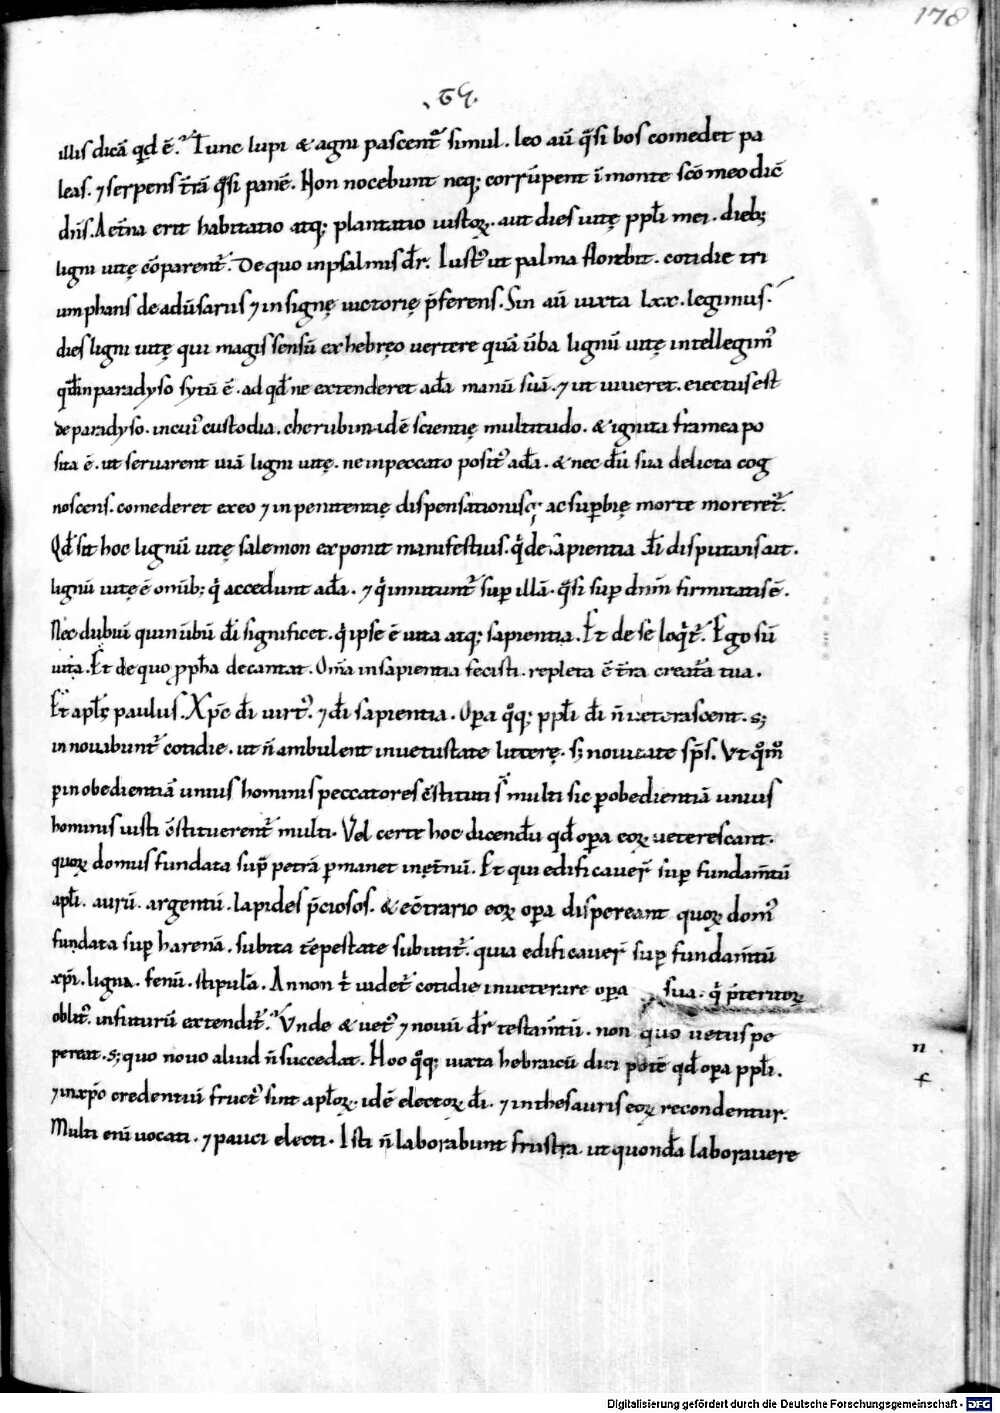 178
illis dicā qđ ē. Tunc lupi & agni pascent᷑ simul. leo aū q̄si bos comedet pa
leas. ⁊ serpens t̄rā q̄si panē. Non nocebunt neq; corrūpent ī monte sc̄o meo dic̄
dn̄s. Aet̄na erit habitatio atq; plantatio iustoꝝ. aut dies uitę ppl̄i mei. dieb;
ligni uitę cōparent᷑. De quo in psalmis dr̄. Iust᷒ ut palma florebit. cotidie tri
umphans de adūsariis ⁊ insignę uictorię p̄ferens. Sin aū iuxta lxx. legimus.
dies ligni uitę qui magis sensū ex hebręo uertere quā ūba lignū uitę intellegim᷒
qđ in paradyso sytū ē. ad qđ ne extenderet adā manū suā. ⁊ ut uiueret. eiectus est
de paradyso. in cui᷒ custodia. cherubin. id ē scientię multitudo. & ignita framea po
sita ē. ut seruarent uiā ligni uitę. ne in peccato posit᷒ adā. & nec dū sua delicta cog
noscens. comederet ex eo ⁊ in penitentię dispensationisq; ac supbię morte moreret᷑.
Qđ sit hoc lignū uitę salemon exponit manifestius. q̄ de sapientia dī disputans ait.
lignū uitę ē omīb; q̄ accedunt adā. ⁊ q̄ innitunt᷑ suꝑ illā. q̄si suꝑ dn̄m firmitatis ē.
Nec dubiū quin ūbū dī significet. q̄ ipse ē uita atq; sapientia. Et de se loq̄t᷑. Ego sū
uita. Et de quo ꝓph̄a decantat. Om̄a in sapientia fecisti. repleta ē t̄ra creat̄a tua.
Et apl̄s paulus. Xp̄c dī uirt᷒. ⁊ dī sapientia. Oꝑa q̊q; ppl̄i dī n̄ ueterascent. s;
innouabunt᷑ cotidie. ut n̄ ambulent in uetustate litterę. s; nouitate sp̄s. Vt q̊m᷒
ꝑ inobedientiā unius hominis peccatores c̄stituti s̄ multi sic ꝑ obedientiā unius
hominis iusti c̄stituerent᷑ multi. Vel certe hoc dicendū qđ oꝑa eoꝝ ueterescant.
quoꝝ domus fundata sup̄ petrā ꝑmanet in ęt̄nū. Et qui edificauer̄ suꝑ fundam̄tū
apl̄i. aurū. argentū. lapides p̄ciosos. & ec̄trario eoꝝ oꝑa dispereant quoꝝ dom᷒
fundata suꝑ harenā. subita tēpestate subuertit᷑. quia edificauer̄ suꝑ fundam̄tū
xp̄i. ligna. fenū. stipulā. An non t̄ uidet᷑ cotidie inueterare oꝑa sua. q̄ p̄teritoꝝ
oblit᷒. in futurū extendit᷑. Vnde & uet᷒ ⁊ nouū dr̄ testam̄tū. non quo uetus pe
pereat. s; quo nouo aliud n̄ succedat. Hoc q̊q; iuxta hebraicū dici potē qđ oꝑa ppl̄i.
⁊ in xp̄o credentiū fruct᷒ sint apl̄oꝝ. id ē electoꝝ dī. ⁊ in thesauris eoꝝ recondentur.
Multi enī uocati. ⁊ pauci electi. Isti n̄ laborabunt frustra. ut quondā laborauere
n
f
Digitalisierung gefördert durch die Deutsche Forschungsgemeinschaft - DFG